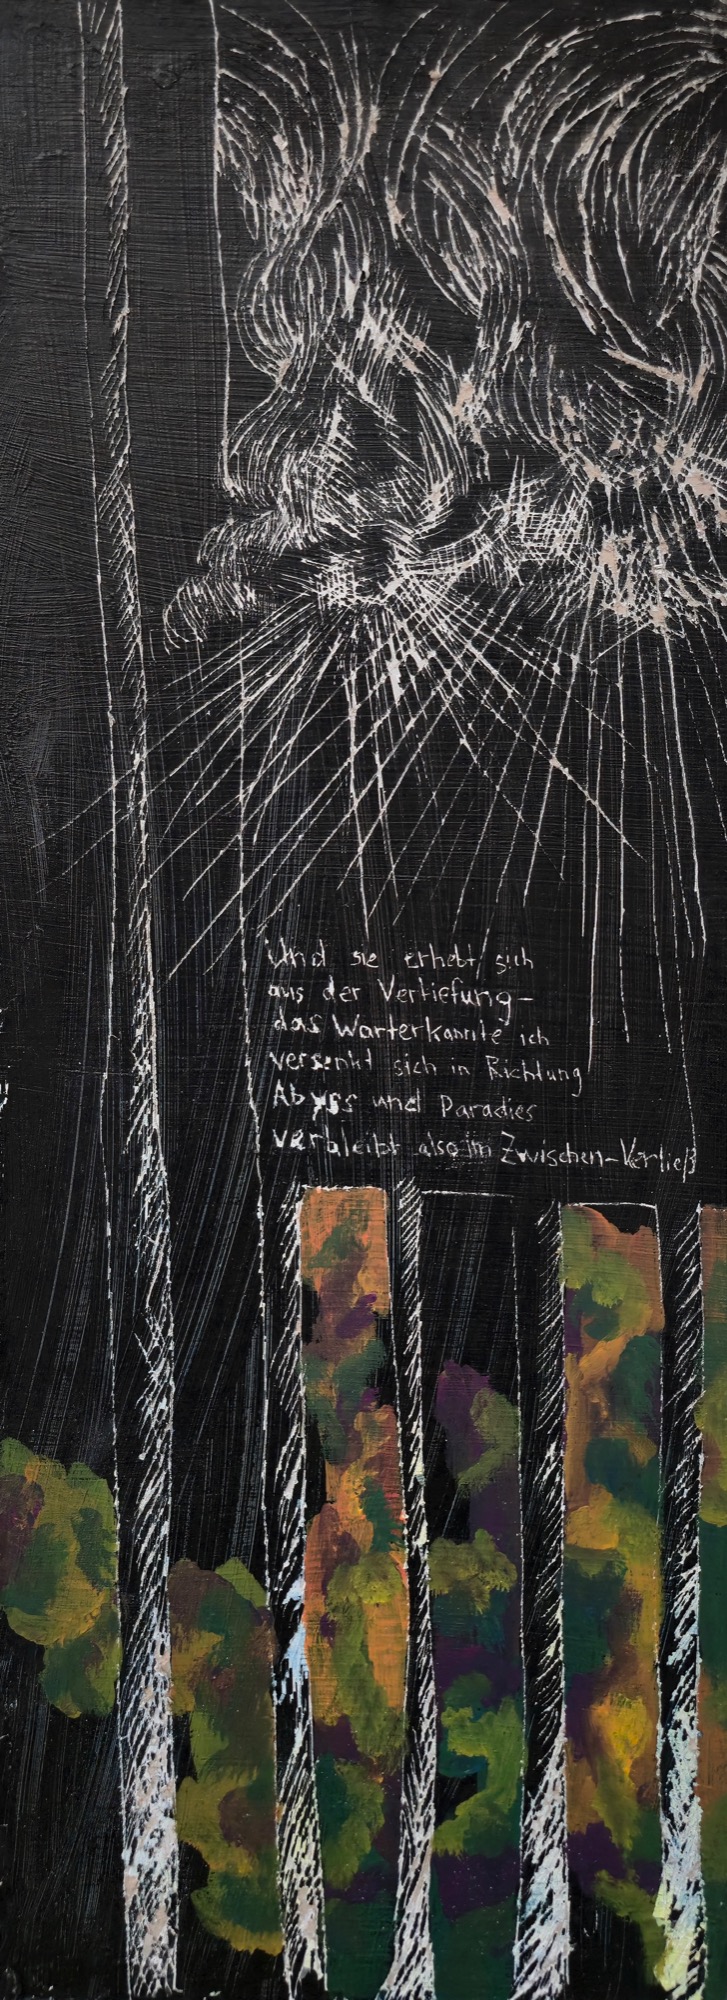 Und sie erhebt sich
aus der Vertiefung–
das Warterkannte ich
versenkt sich in Richtung
Abyss und Paradies
verbleibt also im Zwischen-Verließ